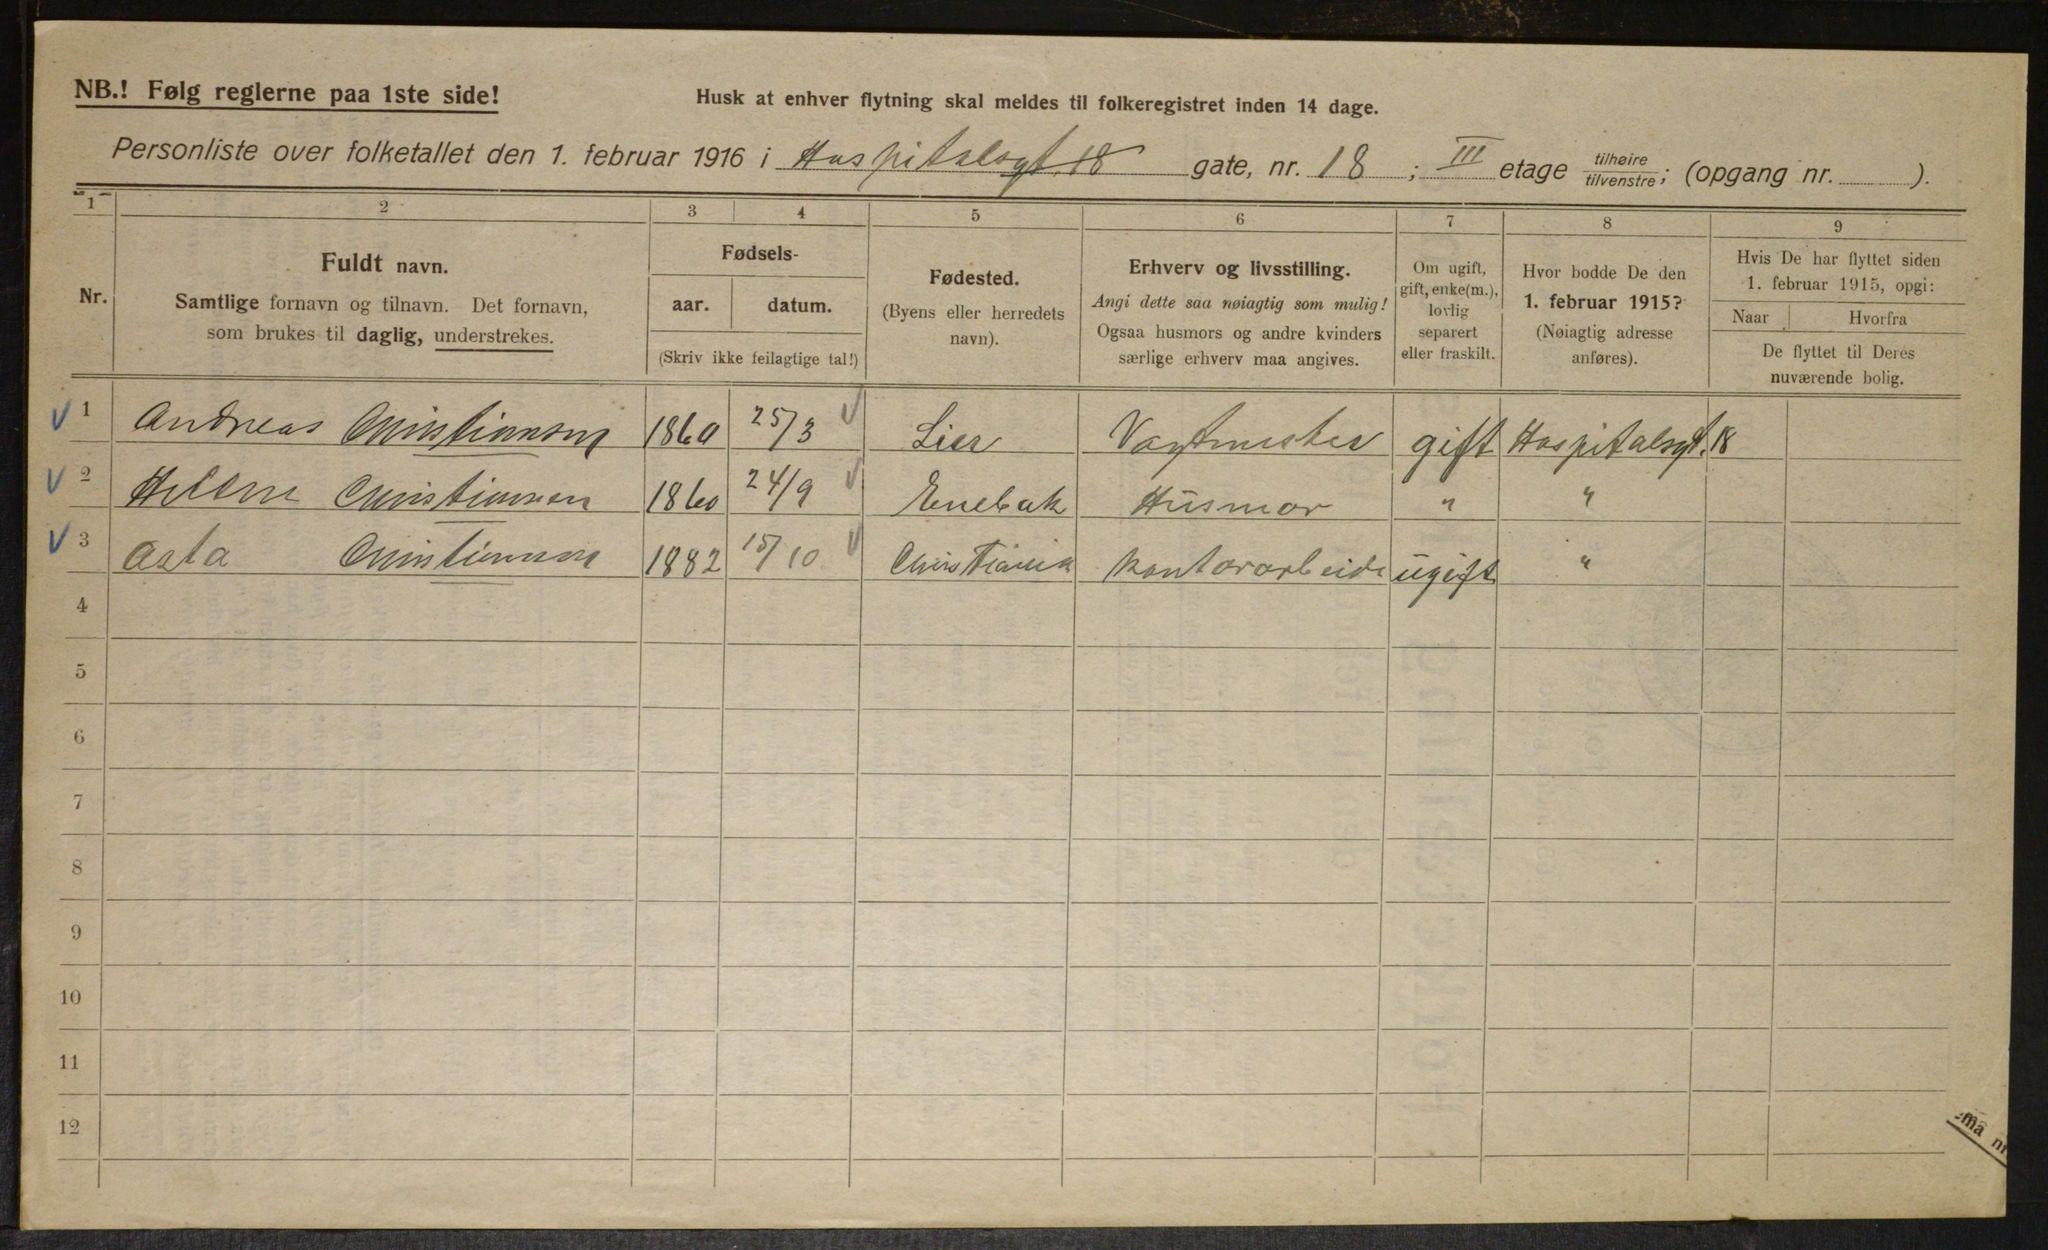 NB.! Følg reglerne paa 1ste side!
Husk at enhver flytning skal meldes til folkeregistret inden 14 dage.
Personliste over folketallet den 1. februar 1916 i Hospitalsgt. 18 gate, nr. 18 ; III etage tilhøire/tilvenstre; (opgang nr. ).
1 2 3 4 5 6 7 8 9
Nr.
Fuldt navn.
Samtlige fornavn og tilnavn. Det fornavn,
som brukes til daglig, understrekes.
Fødsels-
aar. datum.
(Skriv ikke feilagtige tal!)
Fødested.
(Byens eller herredets
navn).
Erhverv og livsstilling.
Angi dette saa nøiagtig som mulig!
Ogsaa husmors og andre kvinders
særlige erhverv maa angives.
Om ugift,
gift, enke(m.),
lovlig
separert
eller fraskilt.
Hvor bodde De den
1. februar 1915?
(Nøiagtig adresse
anføres).
Hvis De har flyttet siden
1. februar 1915, opgi:
Naar Hvorfra
De flyttet til Deres
nuværende bolig.
1 Andreas Christiansen 1860 25/3 Lier Vagtmester gift Hospitalsgt. 18
2 Helene Christiansen 1860 24/9 Enebak Husmor " "
3 Asta Christiansen 1882 15/10 Christiania Kontorarbeide ugift "
4
5
6
7
8
9
10
11
12